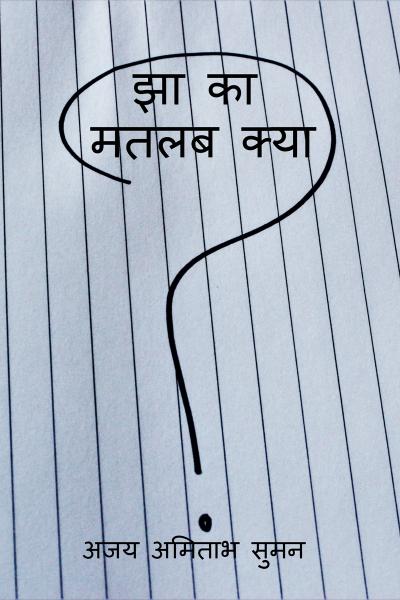 झा का
मतलब क्या
अजय अमिताभ सुमन